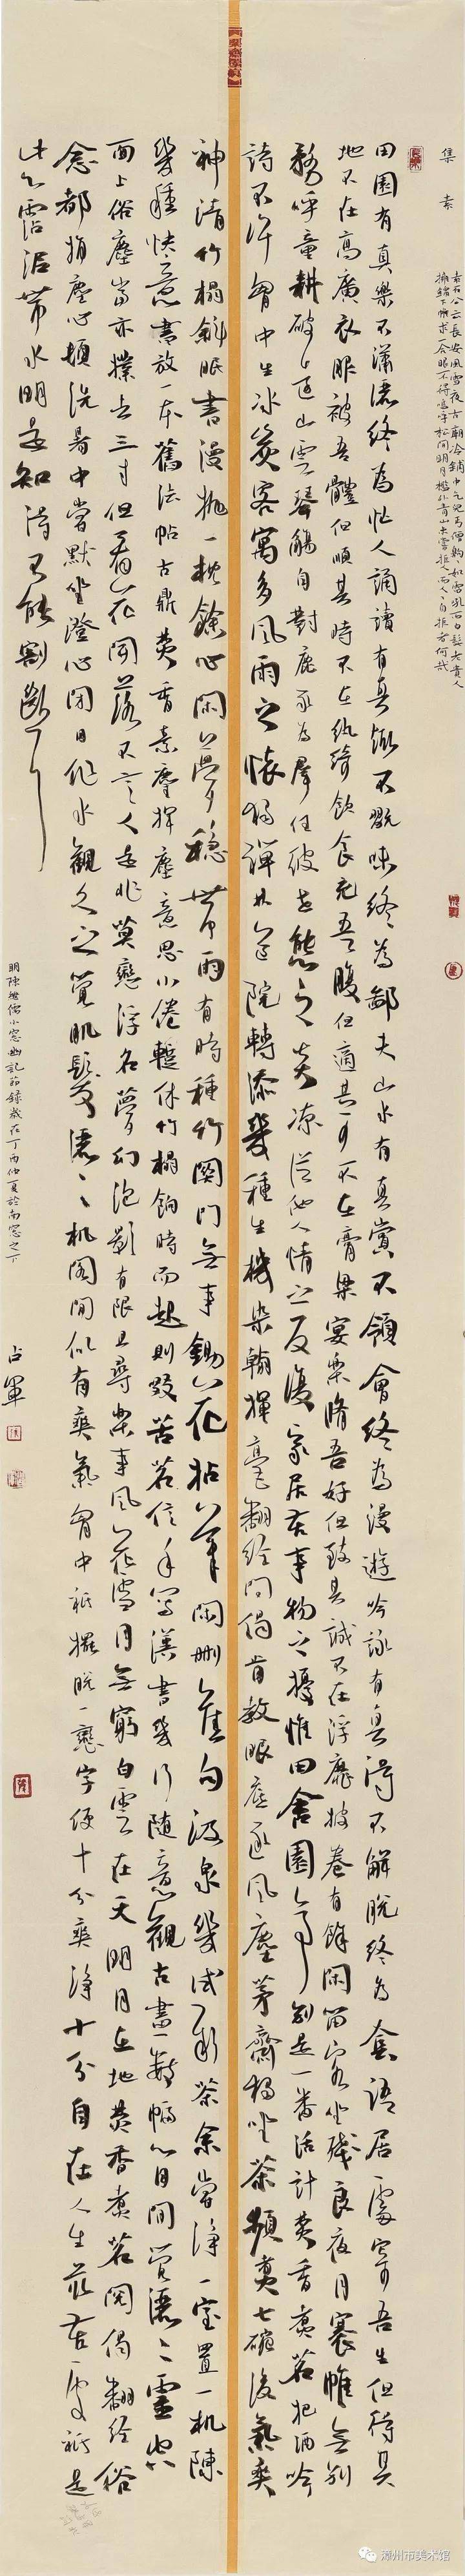 集素
右石公云長安風雪夜古廟冷鋪中乞兒丐僧齁齁如雷吼而白髭老貴人
擁錦下帷求一合眼不得嗚呼松間明月檻外青山未嘗拒人而人人自拒者何哉
田園有真樂不瀟灑終為忙人誦讀有真趣不翫味終為鄙夫山水有真賞不領會終為漫遊吟詠有真得不解脫終為套語居處寄吾生但得其
地不在高廣衣服被吾體但順其時不在紈綺飲食充吾腹但適其可不在膏粱宴樂脩吾好但致其誠不在浮靡披卷有餘閑留客坐殘良夜月褰帷無別
務呼童耕破遠山雲琴觴自對鹿豕為群任彼世態之炎涼從他人情之反復家居苦事物之擾惟田舍園亭別是一番活計焚香煮茗把酒吟
詩不許胸中生冰炭客寓多風雨之懷獨禪林道院轉添幾種生機染翰揮毫翻經問偈肯教眼底逐風塵茅齋獨坐茶頻煮七碗後氣爽
神清竹榻斜眠書漫拋一枕餘心閑夢穩帶雨有時種竹關門無事鋤花拈筆閑刪舊句汲泉幾試新茶余嘗淨一室置一机陳
幾種快意書放一本舊法帖古鼎焚香素麈揮塵意思小倦暫休竹榻餉時而起則啜苦茗信手寫漢書幾行隨意觀古畫數幅心目間覺灑灑靈空
面上俗塵當亦撲去三寸但看花開落不言人是非莫戀浮名夢幻泡影有限且尋樂事風花雪月無窮白雲在天明月在地焚香煮茗閱偈翻經俗
念都捐塵心頓洗暑中嘗默坐澄心閉目作水觀久之覺肌髮灑灑几閣間似有爽氣胸中祇擺脫一戀字便十分爽淨十分自在人生最苦處祇是
此心霑泥帶水明是知得不能割斷耳
明陳繼儒小窗幽記節錄歲在丁酉仲夏於南窗之下
占軍
漳州市美术馆